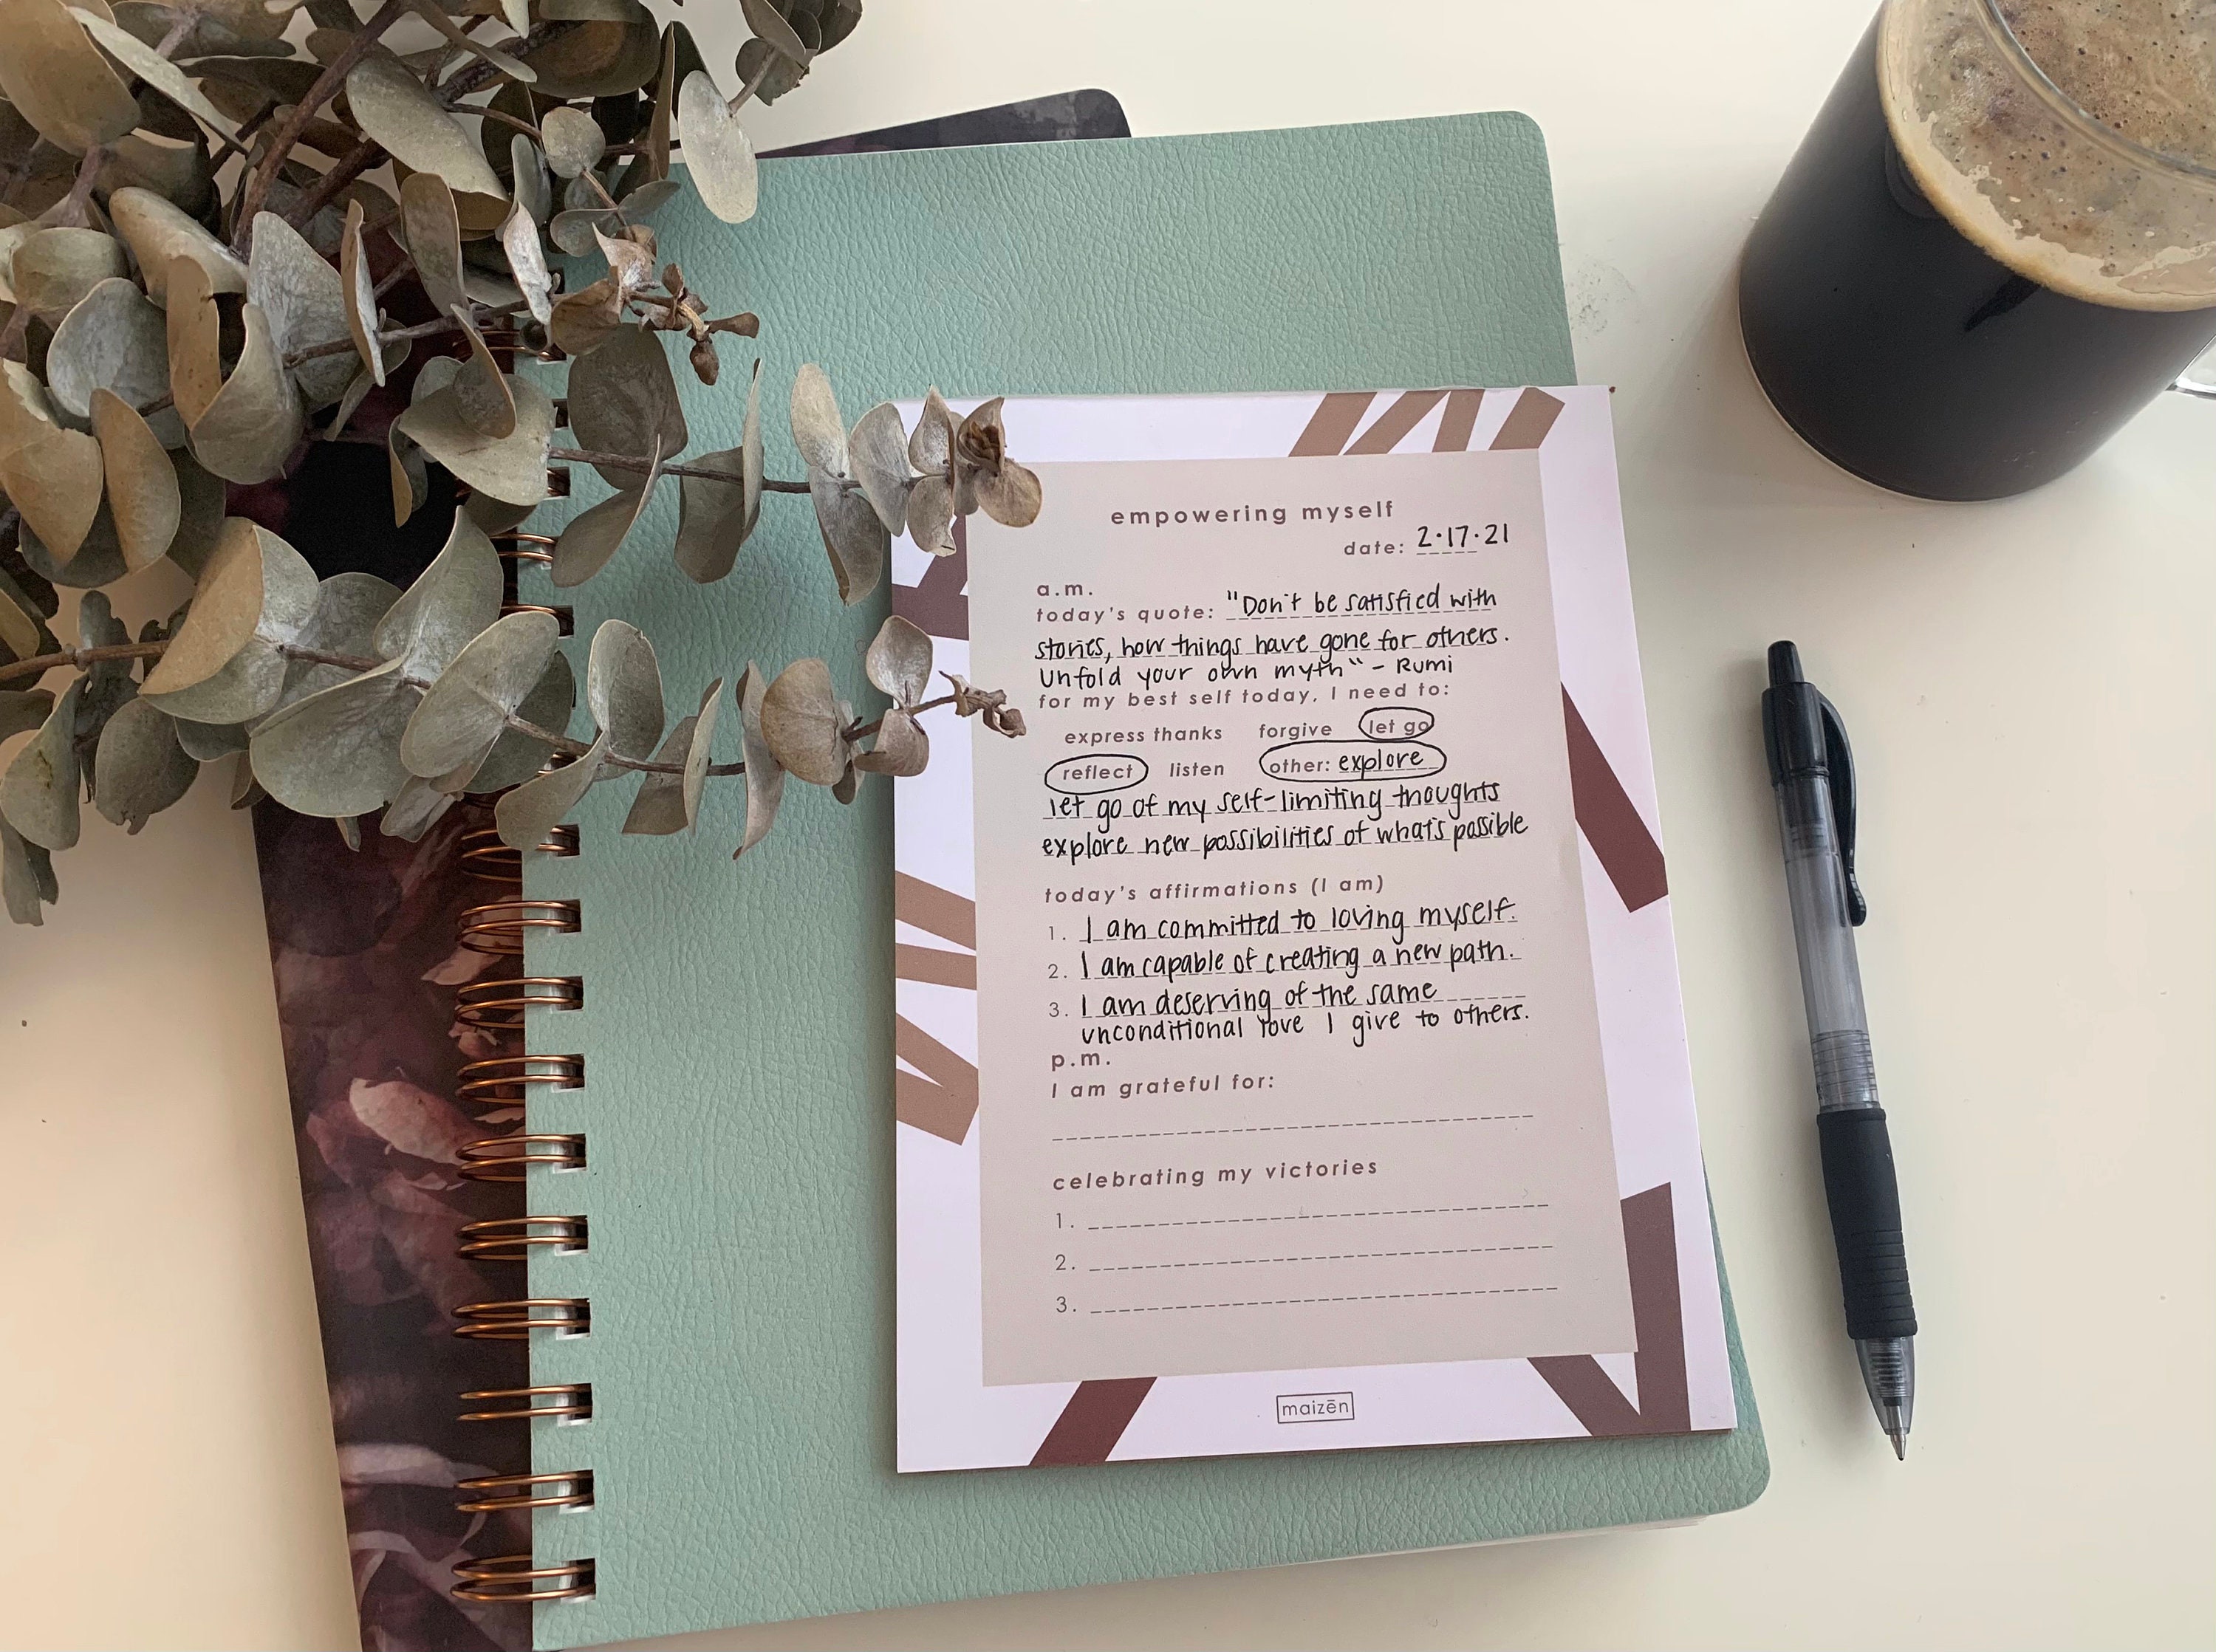 empowering myself
date: 2·17·21
a.m.
today's quote: "Don't be satisfied with
stories, how things have gone for others.
Unfold your own myth" - Rumi
for my best self today, I need to:
express thanks forgive let go
reflect listen other: explore
let go of my self-limiting thoughts
explore new possibilities of what's possible
today's affirmations (I am)
1. I am committed to loving myself.
2. I am capable of creating a new path.
3. I am deserving of the same
unconditional love I give to others.
p.m.
I am grateful for:
celebrating my victories
1.
2.
3.
maizēn